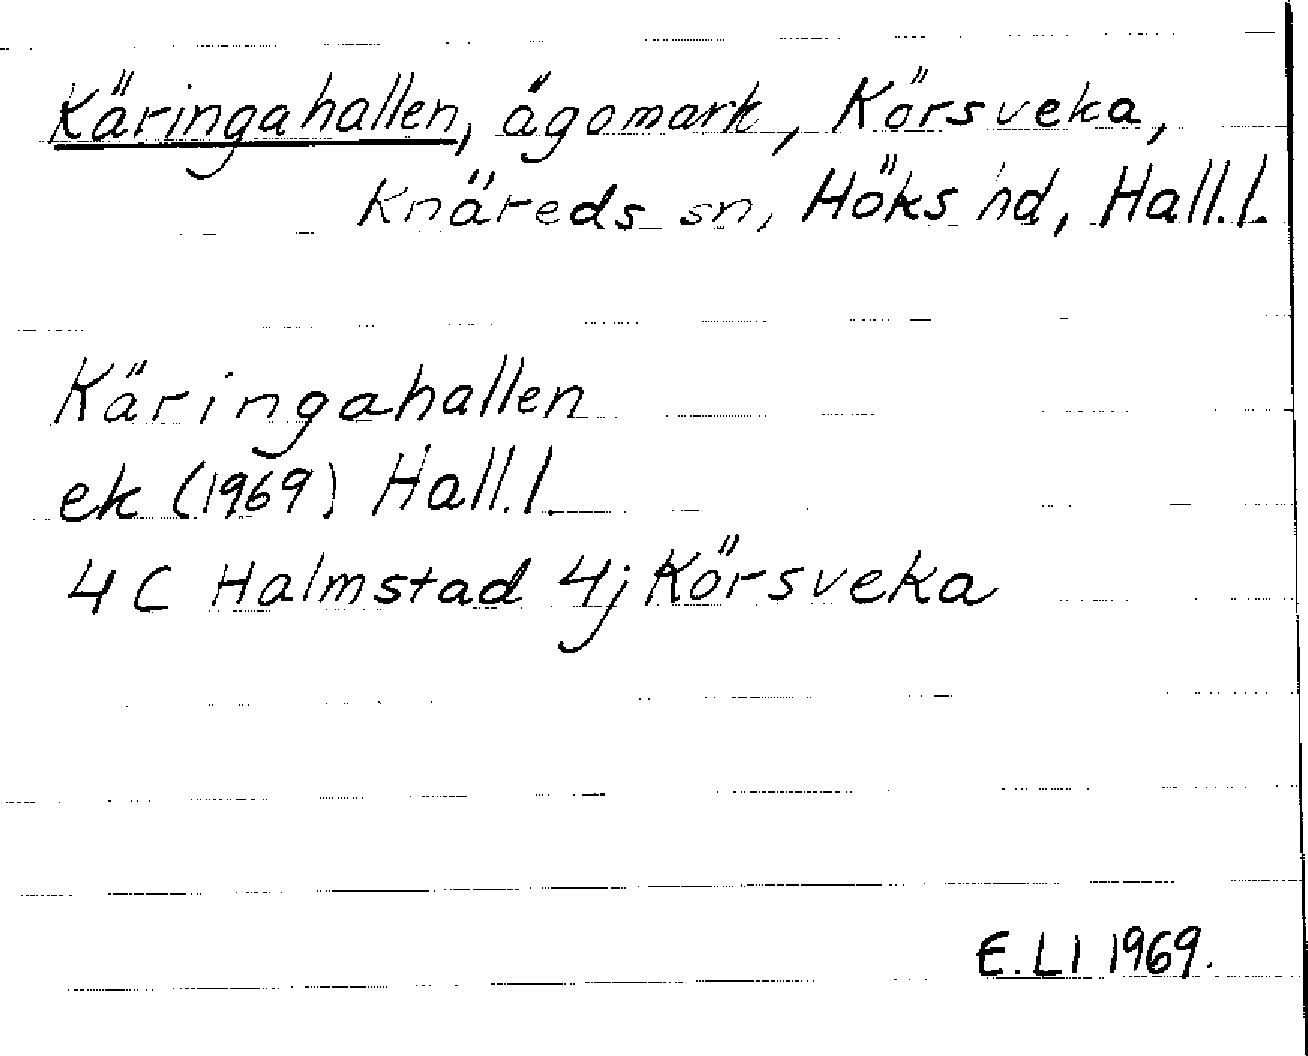 Käringahallen, ägomark, Körsveka,
Knäreds sn, Höks hd, Hall.l.
Käringahallen
ek (1969) Hall.l.
4C Halmstad 4j Körsveka
E.LI 1969.